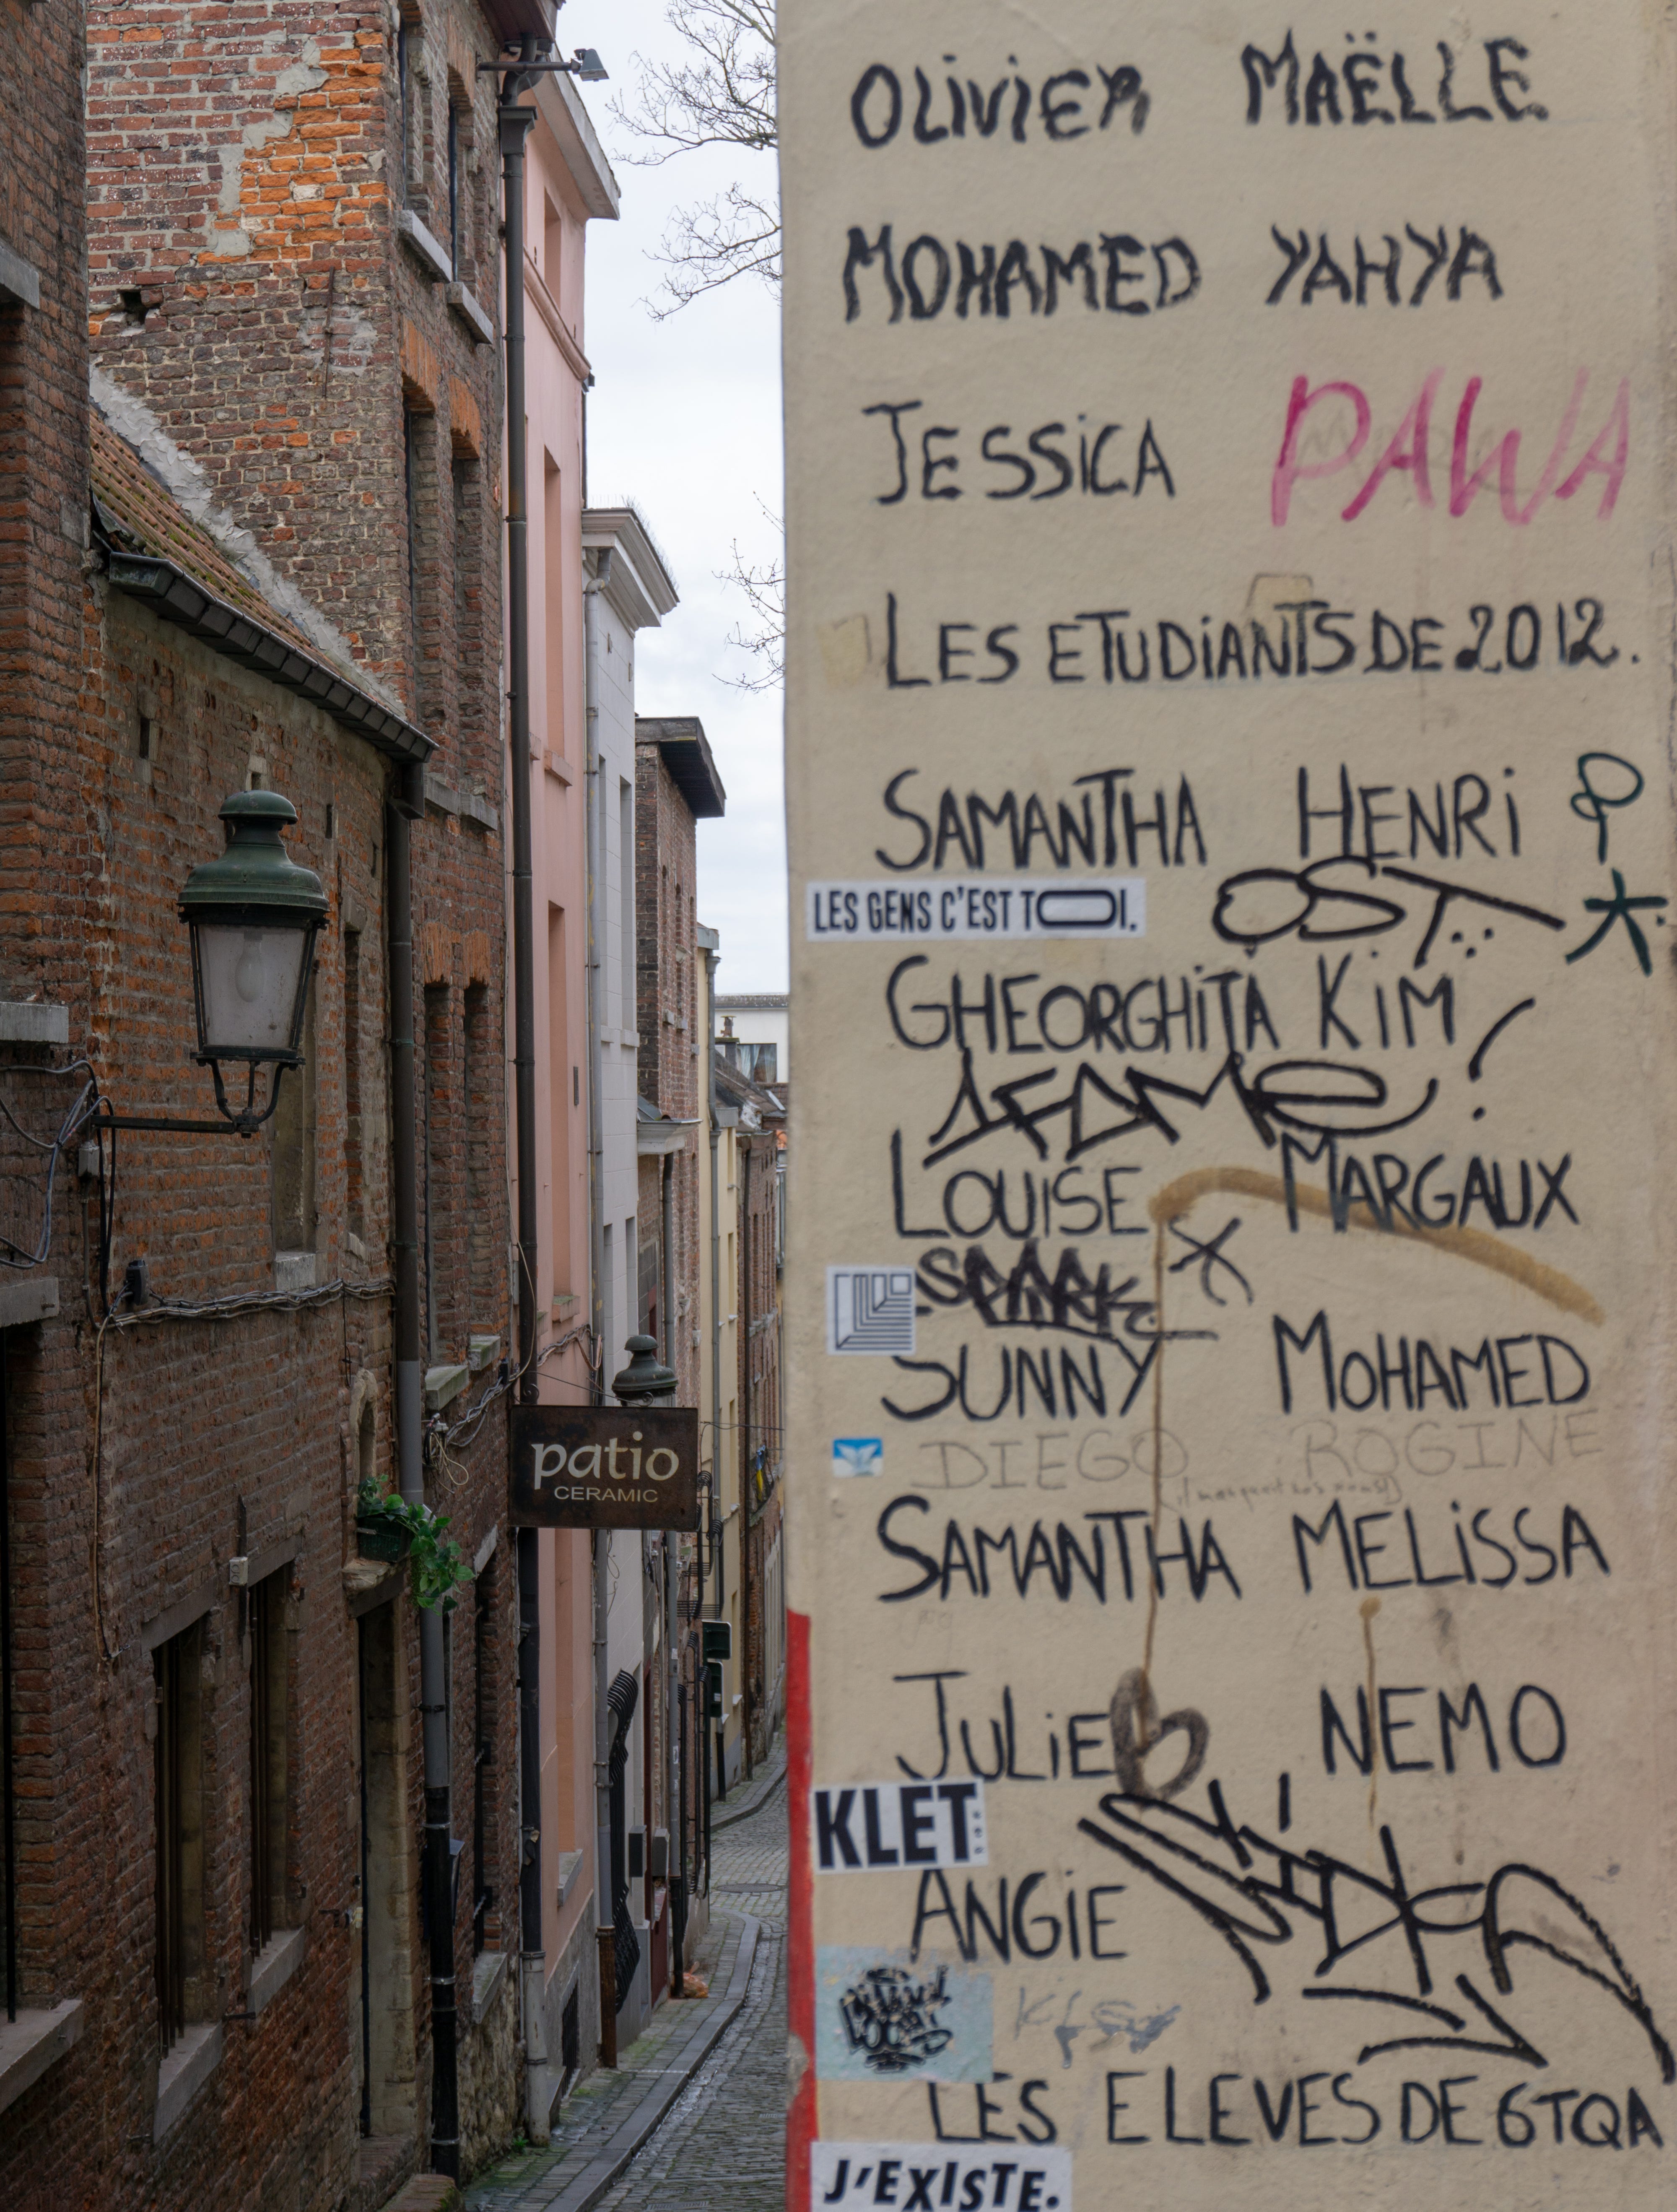 OLiViER MAËLLE
MOHAMED YAHYA
JESSiCA PAWA
LES ETUDiANTS DE 2012.
SAMANTHA HENRi
LES GENS C'EST TOI.
OST
GHEORGHiȚA KiM
LOUiSE MARGAUX
SPARK
SUNNY MOHAMED
DIEGO ROGINE
patio
CERAMIC
SAMANTHA MELiSSA
JULiE NEMO
KLET
ANGiE
LES ELEVES DE 6TQA
J'EXISTE.